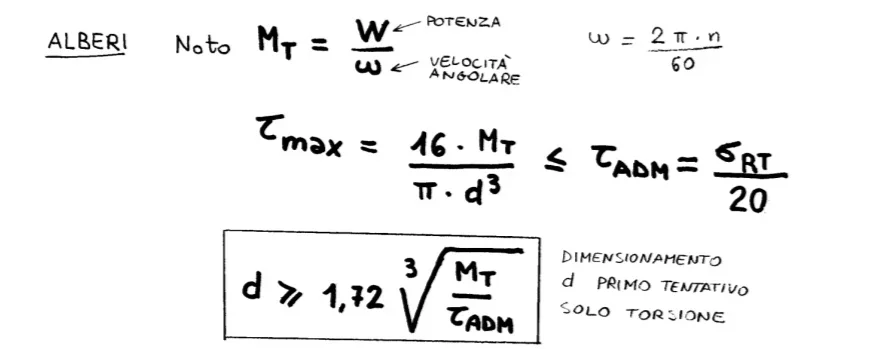 ALBERI Noto M_T = W/ω ← POTENZA ← VELOCITÀ ANGOLARE ω = 2π·n/60
τ_max = 16·M_T/π·d³ ≤ τ_ADM = σ_RT/20
d ⩾ 1,72 ³√(M_T/τ_ADM)
DIMENSIONAMENTO
d PRIMO TENTATIVO
SOLO TORSIONE